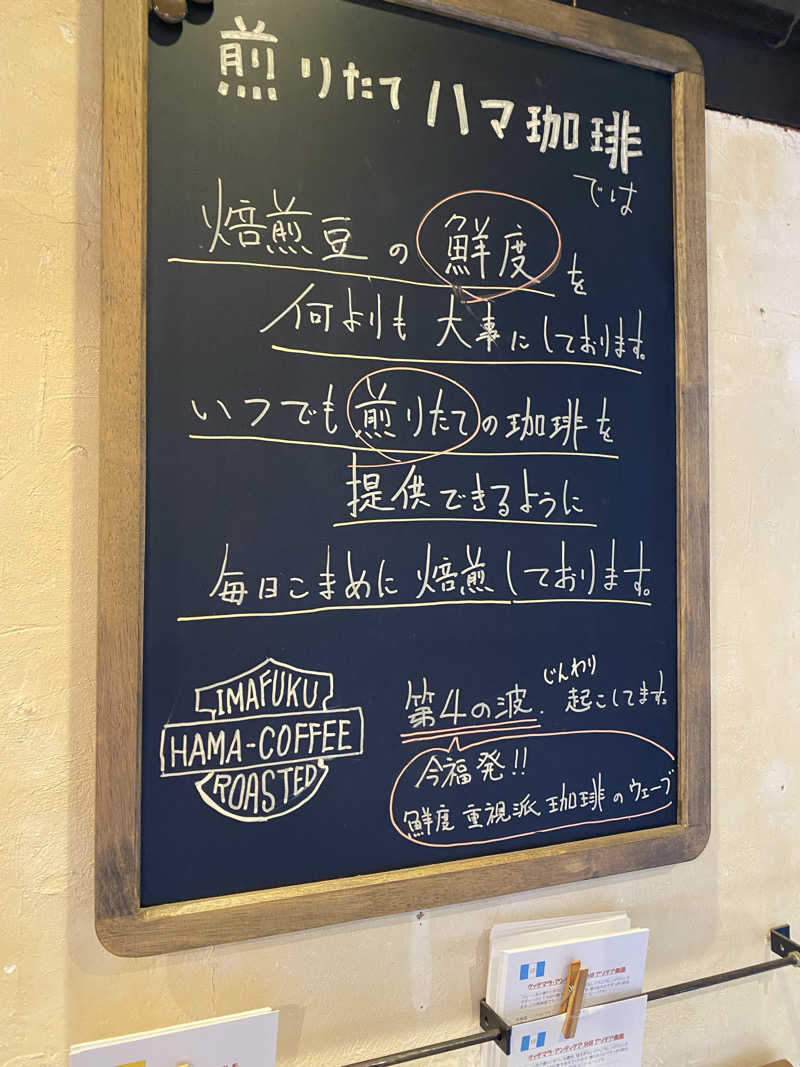 煎りたて ハマ珈琲
では
焙煎豆の鮮度を
何よりも大事にしております。
いつでも煎りたての珈琲を
提供できるように
毎日こまめに焙煎しております。
IMAFUKU
HAMA-COFFEE
ROASTED
第4の波、じんわり起こしてます。
今福発!!
鮮度重視派珈琲のウェーブ